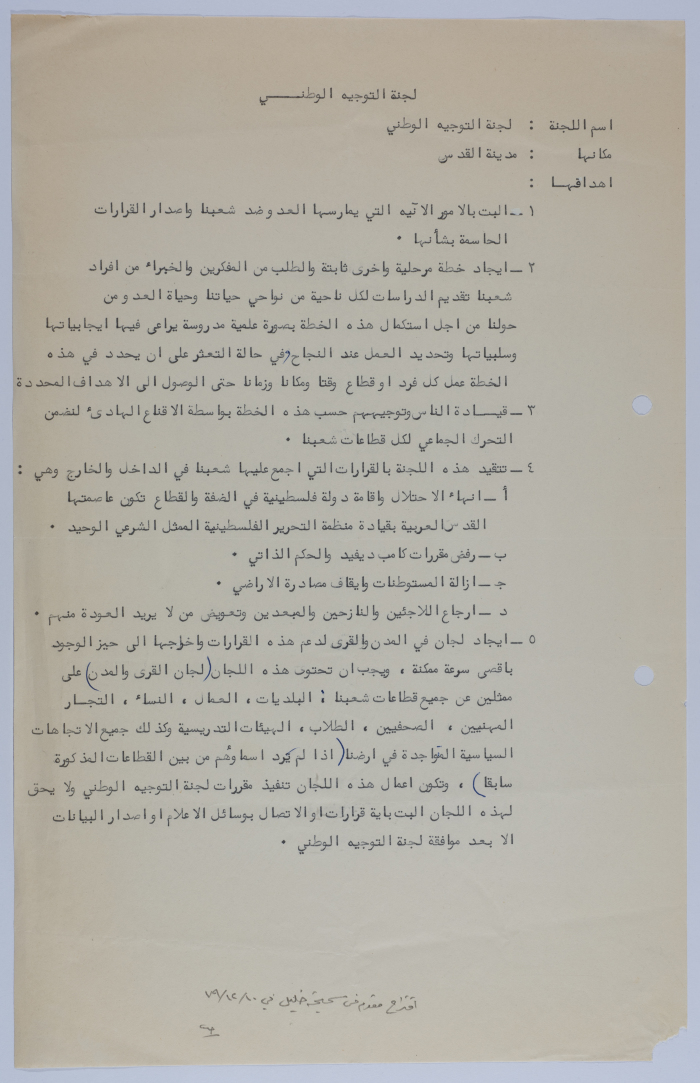 لجنة التوجيه الوطنـــــي
اسم اللجنة : لجنة التوجيه الوطني
مكانها : مدينة القدس
اهدافهـا :
١ ــ البت بالامور الآنيه التي يمارسها العدو ضد شعبنا واصدار القرارات
الحاسمة بشأنها .
٢ ــ ايجاد خطة مرحلية واخرى ثابتة والطلب من المفكرين والخبراء من افراد
شعبنا تقديم الدراسات لكل ناحية من نواحي حياتنا وحياة العدو من
حولنا من اجل استكمال هذه الخطة بصورة علمية مدروسة يراعى فيها ايجابياتها
وسلبياتها وتحديد العمل عند النجاح وفي حالة التعثر على ان يحدد في هذه
الخطة عمل كل فرد او قطاع وقتا ومكانا وزمانا حتى الوصول الى الاهداف المحددة
٣ ــ قيــادة الناس وتوجيههم حسب هذه الخطة بواسطة الاقناع الهادئ لنضمن
التحرك الجماعي لكل قطاعات شعبنا .
٤ ــ تتقيد هذه اللجنة بالقرارات التي اجمع عليها شعبنا في الداخل والخارج وهي :
أ ــ انهاء الاحتلال واقامة دولة فلسطينية في الضفة والقطاع تكون عاصمتها
القدس العربية بقيادة منظمة التحرير الفلسطينية الممثل الشرعي الوحيد .
ب ــ رفض مقررات كامب ديفيد والحكم الذاتي .
جـ ــ ازالة المستوطنات وايقاف مصادرة الاراضي .
د ــ ارجاع اللاجئين والنازحين والمبعدين وتعويض من لا يريد العودة منهم .
٥ ــ ايجاد لجان في المدن والقرى لدعم هذه القرارات واخراجها الى حيز الوجود
باقصى سرعة ممكنة ، ويجب ان تحتوى هذه اللجان (لجان القرى والمدن) على
ممثلين عن جميع قطاعات شعبنا : البلديات ، العمال ، النساء ، التجـار
المهنيين ، الصحفيين ، الطلاب ، الهيئات التدريسية وكذلك جميع الاتجاهات
السياسية المتواجدة في ارضنا (اذا لم يرد اسماؤهم من بين القطاعات المذكورة
سابقا) ، وتكون اعمال هذه اللجان تنفيذ مقررات لجنة التوجيه الوطني ولا يحق
لهذه اللجان البت باية قرارات او الاتصال بوسائل الاعلام او اصدار البيانات
الا بعد موافقة لجنة التوجيه الوطني .
اقتراح مقدم من سميحة خليل في ٧٩/١٢/١٠